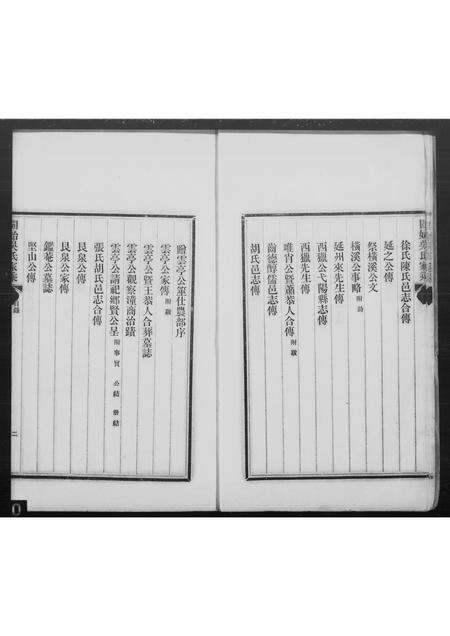 徐氏陳氏邑志合傳
延之公傳
祭橫溪公文
橫溪公事略附詩
延州來先生傳
西獵公弋陽縣志傳
西獵先生傳
唯肖公暨蕭恭人合傳附跋
崗德醇儒邑志傳
胡氏邑志傳
贈雲亭公筮仕農部序
雲亭公家傳附跋
雲亭公暨王恭人合葬墓誌
雲亭公觀察漳商治蹟
雲亭公請祀鄉賢公呈附事實 公結 册結
張氏胡氏邑志合傳
艮泉公傳
艮泉公家傳
鑑菴公墓誌
堅山公傳
二